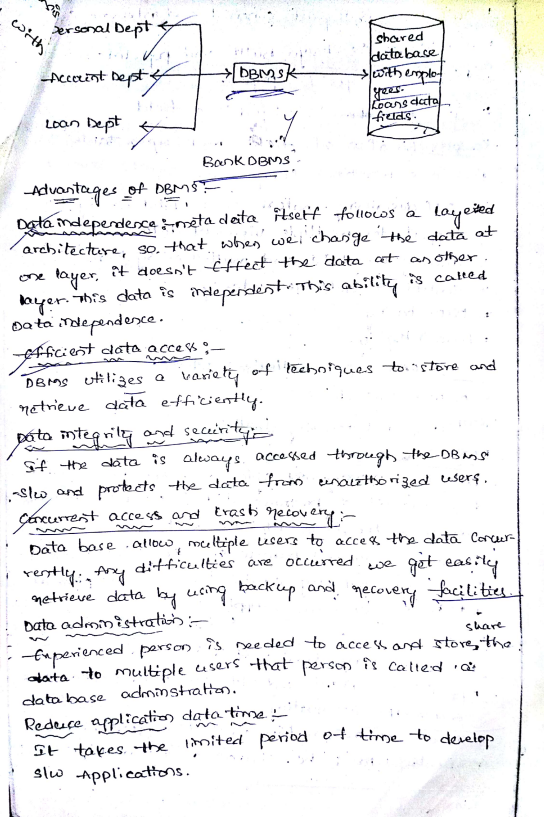 with
Personal Dept
Account Dept
Loan Dept
DBMS
shared
database
with emplo-
yees.
Loans data
fields.
Bank DBMS
Advantages of DBMS :-
Data independence :- meta data itself follows a layered
architecture, so that when we change the data at
one layer, it doesn't effect the data at another
layer. This data is independent. This ability is called
Data independence.
Efficient data access :-
DBMS utilizes a variety of techniques to store and
retrieve data efficiently.
Data integrity and security :-
If the data is always accessed through the DBMS
s/w and protects the data from unauthorized users.
Concurrent access and crash recovery :-
Data base allow multiple users to access the data concur-
rently. Any difficulties are occurred we get easily
retrieve data by using backup and recovery facilities.
Data administration :-
share
Experienced person is needed to access and store, the
data to multiple users that person is called as
data base adminstration.
Reduce application data time :-
It takes the limited period of time to develop
s/w Applications.